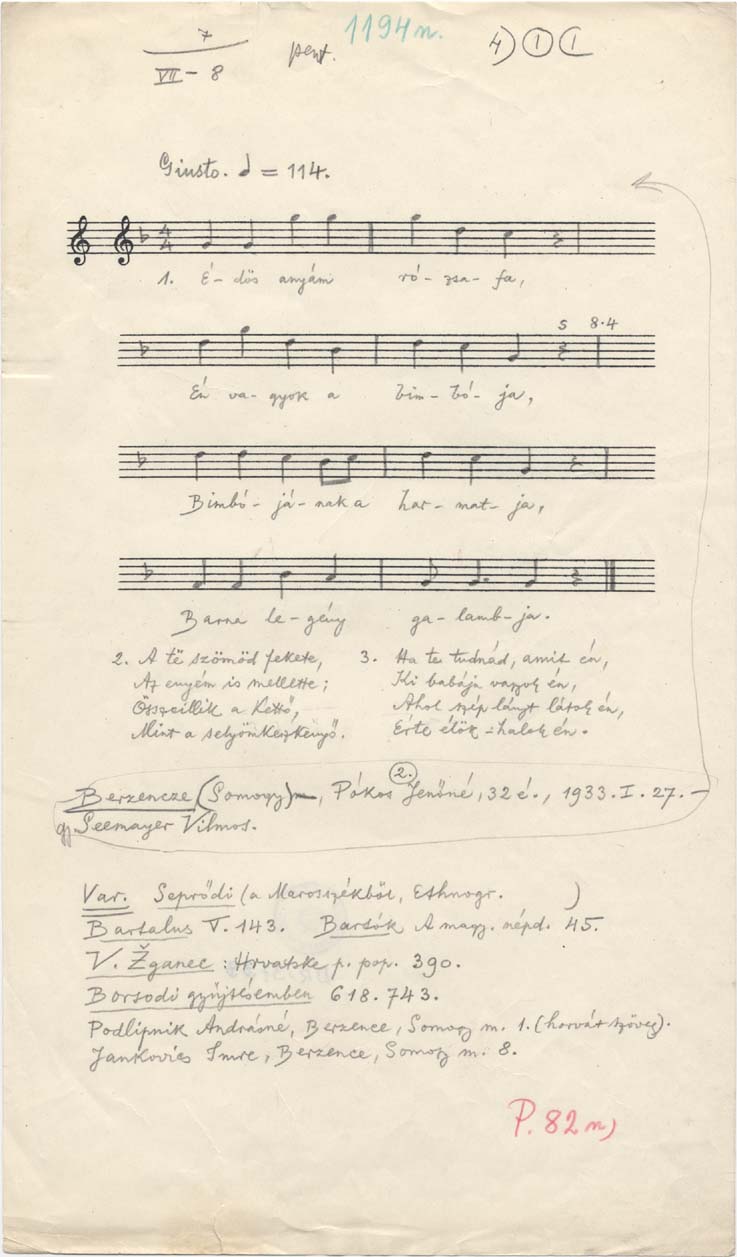 1194n.
7
VII - 8
pent.
4) 1 1
Giusto. = 114.
4
4
1. É- dös anyám ró- zsa- fa,
5 8.4
Én va- gyok a bim- bó- ja,
Bimbó- já- nak a har- mat- ja,
Barna le- gény ga- lamb- ja.
2. A tě szömöd fekete,
Az enyém is mellette;
Összeillik a kettő,
Mint a selyömkeszkenyő.
3. Ha te tudnád, amit én,
Ki babája vagyok én,
Ahol szép lányt látok én,
Érte élök-halok én.
2.
Berzencze (Somogy), Pókos Jenőné, 32 é., 1933. I. 27.
gy. Seemayer Vilmos.
Var. Seprődi (a Marosszékből, Ethnogr. )
Bartalus V. 143. Bartók A magy. népd. 45.
V. Žganec : Hrvatske p. pop. 390.
Borsodi gyűjtésemben 618. 743.
Podlipnik Andrásné, Berzence, Somogy m. 1. (horvát szöveg).
Jankovics Imre, Berzence, Somogy m. 8.
P. 82 n)